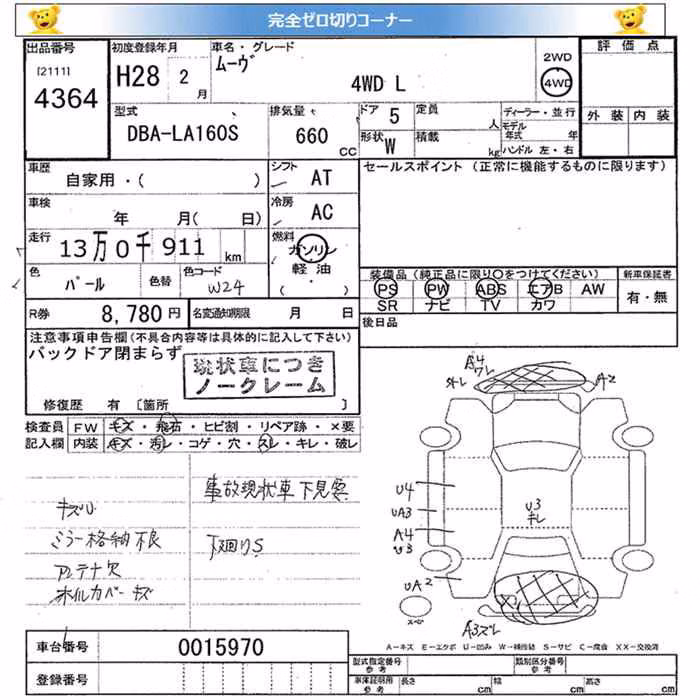 完全ゼロ切りコーナー
出品番号
[2111]
4364
初度登録年月
H28 2月
車名・グレード
ムーヴ
4WD L
2WD
4WD
評価点
外装 内装
型式
DBA-LA160S
排気量
660
CC
ドア 5
定員
人
形状 W
積載
kg
ディーラー・並行
モデル年式 年
ハンドル 左・右
車歴
自家用・( )
シフト
AT
セールスポイント (正常に機能するものに限ります)
車検
年 月( 日)
冷房
AC
走行
13万0千911
km
燃料
ガソリン
軽油
( ・ )
色
パール
色替
色コード
W24
装備品(純正品に限り○をつけてください)
PS PW ABS エアB AW
SR ナビ TV カワ
新車保証書
有・無
R券
8,780円
名変通知期限 月 日
後日品
注意事項申告欄(不具合内容等は具体的に記入して下さい)
バックドア閉まらず
現状車につき
ノークレーム
修復歴 有 [箇所 ]
検査員
記入欄
FW キズ・飛石・ヒビ割・リペア跡・×要
内装 キズ・汚レ・コゲ・穴・スレ・キレ・破レ
事故現状車下見要
キズU
ミラー格納不良
下廻りS
アンテナ欠
ホイルカバーキズ
A4
ワレ
ズレ
A2
U4
UA3
A4
U3
UA2
U3
キレ
スペア
A3ズレ
A-キズ E-エクボ U-凹み W-補修跡 S-サビ C-腐食 XX-交換済
車台番号
0015970
登録番号
型式指定番号
参考
類別区分番号
参考
車庫証明用
参考
長さ cm
幅 cm
高さ cm